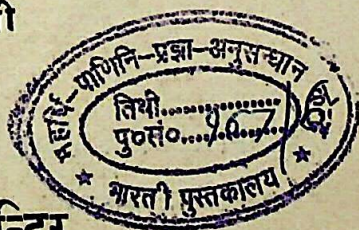 महर्षि-पाणिनि-प्रज्ञा-अनुसन्धान
तिथी..................
पु०सं०...967
★ भारती पुस्तकालय ★